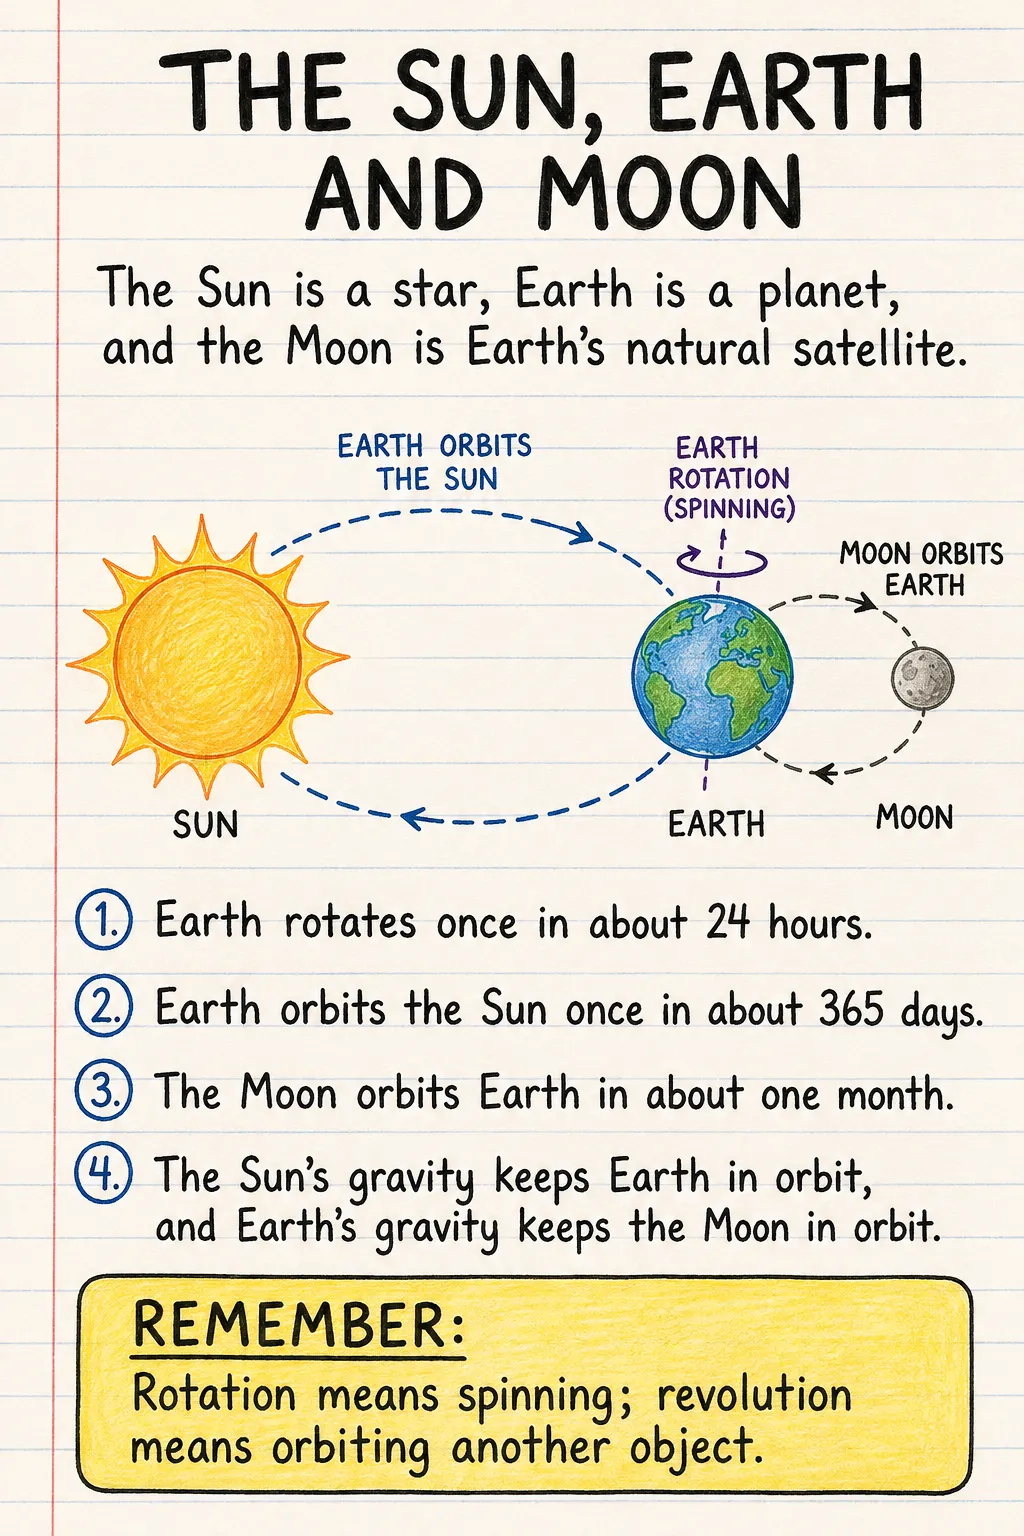 THE SUN, EARTH
AND MOON
The Sun is a star, Earth is a planet,
and the Moon is Earth's natural satellite.
EARTH ORBITS
THE SUN
EARTH
ROTATION
(SPINNING)
MOON ORBITS
EARTH
SUN
EARTH
MOON
1. Earth rotates once in about 24 hours.
2. Earth orbits the Sun once in about 365 days.
3. The Moon orbits Earth in about one month.
4. The Sun's gravity keeps Earth in orbit,
and Earth's gravity keeps the Moon in orbit.
REMEMBER:
Rotation means spinning; revolution
means orbiting another object.